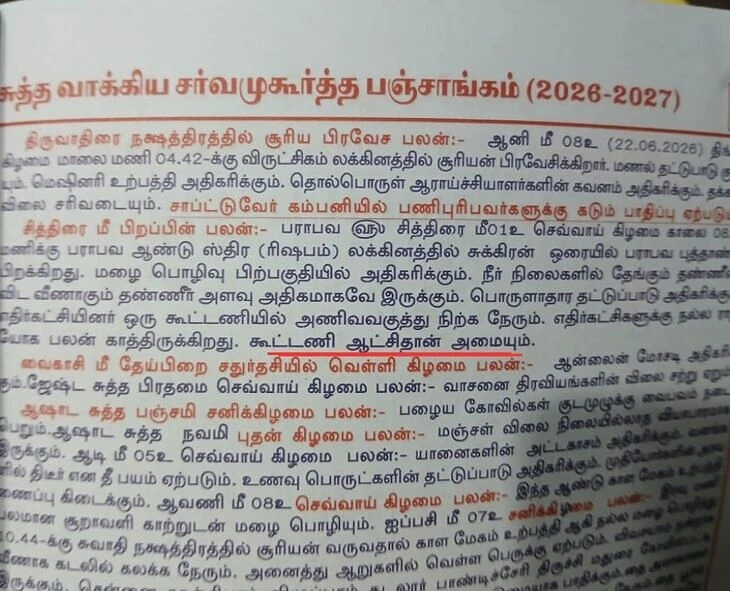 சுத்த வாக்கிய சர்வமுகூர்த்த பஞ்சாங்கம் (2026-2027)
திருவாதிரை நக்ஷத்திரத்தில் சூரிய பிரவேச பலன்:- ஆனி மீ 08உ (22.06.2026) திங்
கிழமை மாலை மணி 04.42-க்கு விருட்சிகம் லக்கினத்தில் சூரியன் பிரவேசிக்கிறார். மணல் தட்டுபாடு
யும். மெஷினரி உற்பத்தி அதிகரிக்கும். தொல்பொருள் ஆராய்ச்சியாளர்களின் கவனம் அதிகரிக்கும்.
விலை சரிவடையும். சாப்ட்டுவேர் கம்பனியில் பணிபுரிபவர்களுக்கு கடும் பாதிப்பு ஏற்படும்
சித்திரை மீ பிறப்பின் பலன்:- பராபவ ௵ சித்திரை மீ01உ செவ்வாய் கிழமை காலை 08
மணிக்கு பராபவ ஆண்டு ஸ்திர (ரிஷபம்) லக்கினத்தில் சுக்கிரன் ஓரையில் பராபவ புத்தாண்
பிறக்கிறது. மழை பொழிவு பிற்பகுதியில் அதிகரிக்கும். நீர் நிலைகளில் தேங்கும் தண்ணீ
விட வீணாகும் தண்ணீர் அளவு அதிகமாகவே இருக்கும். பொருளாதார தட்டுப்பாடு அதிகரிக்கு
எதிர்கட்சியினர் ஒரு கூட்டணியில் அணிவவகுத்து நிற்க நேரும். எதிர்கட்சிகளுக்கு நல்ல ரா
யோக பலன் காத்திருக்கிறது. கூட்டணி ஆட்சிதான் அமையும்.
வைகாசி மீ தேய்பிறை சதுர்தசியில் வெள்ளி கிழமை பலன்:- ஆன்லைன் மோசடி அதிகரி
கும்.ஜேஷ்ட சுத்த பிரதமை செவ்வாய் கிழமை பலன்:- வாசனை திரவியங்களின் விலை சற்று ஏறும்
ஆஷாட சுத்த பஞ்சமி சனிக்கிழமை பலன்:- பழைய கோவில்கள் குடமுழுக்கு வைபவம் நடை
பெறும்.ஆஷாட சுத்த நவமி புதன் கிழமை பலன்:- மஞ்சள் விலை நிலையில்லாத வியாபாரமாக
இருக்கும். ஆடி மீ 05உ செவ்வாய் கிழமை பலன்:- யானைகளின் அட்டகாசம் அதிகரிக்கும்.
ளில் திடீர் என தீ பயம் ஏற்படும். உணவு பொருட்களின் தட்டுப்பாடு அதிகரிக்கும். முதியோர்களின்
ணைப்பு கிடைக்கும். ஆவணி மீ 08உ செவ்வாய் கிழமை பலன்:- இந்த ஆண்டு கால மேகம் உற்பத்தி
பலமான சூறாவளி காற்றுடன் மழை பொழியும். ஐப்பசி மீ 07உ சனிக்கிழமை பலன்:- இரவு மணி
10.44-க்கு சுவாதி நக்ஷத்திரத்தில் சூரியன் வருவதால் கால மேகம் உற்பத்தி ஆகி நல்ல மழை
வீணாக கடலில் கலக்க நேரும். அனைத்து ஆறுகளில் வெள்ள பெருக்கு ஏற்படும். விவசாயம்
இருக்கும். கடலூர் பாண்டிச்சேரி திருச்சி மதுரை